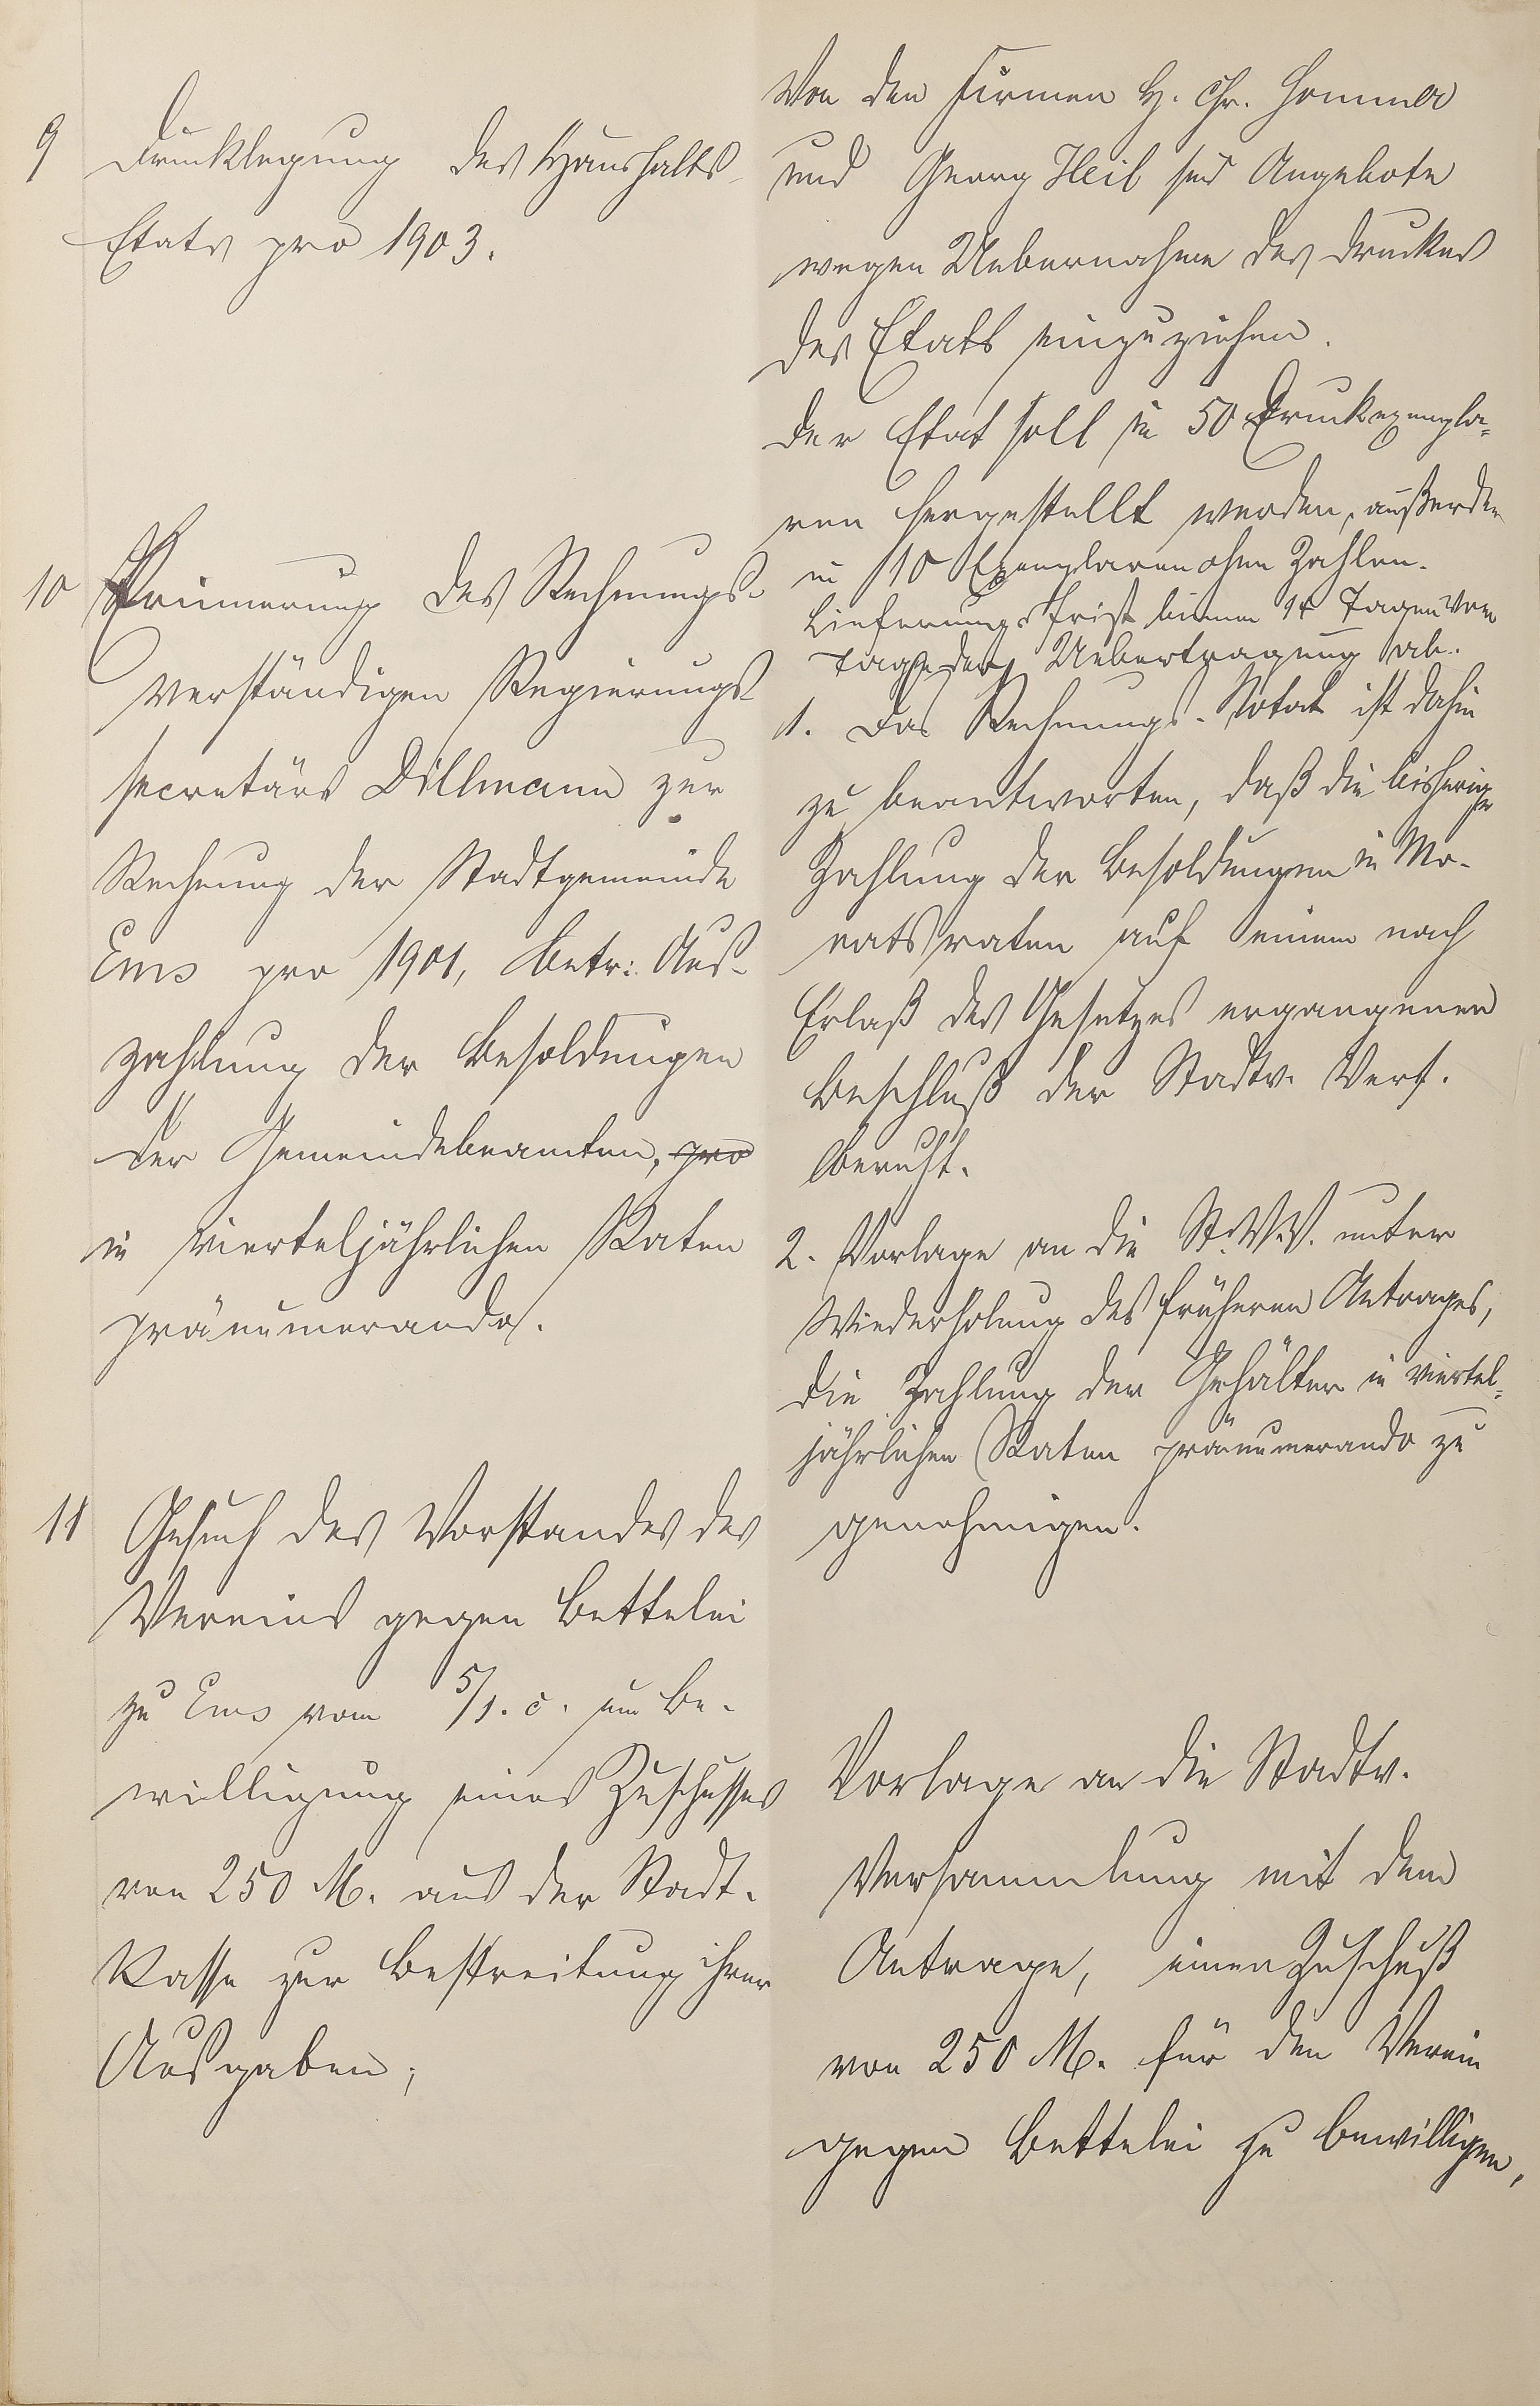 9 Drucklegung des Haushalts-
Etats pro 1903.
Von den Firmen H. Chr. Sommer
und Georg Heil sind Angebote
wegen Uebernahme des Druckes
des Etats einzuziehen.
Der Etat soll in 50 Druckexempla=
ren hergestellt werden, außerdem
in 10 Exemplaren ohne Zahlen.
Lieferungsfrist binnen 14 Tagen vom
Tage der Uebertragung ab.
10 Erinnerung des Rechnungs-
verständigen Regierungs-
secretärs Dillmann zur
Rechnung der Stadtgemeinde
Ems pro 1901, betr: Aus-
zahlung der Besoldungen
der Gemeindebeamten, pro
in vierteljährlichen Raten
pränumerando.
1. Das Rechnungs-Notat ist dahin
zu beantworten, daß die bisherige
Zahlung der Besoldungen in Mo-
natsraten auf einem nach
Erlaß des Gesetzes ergangenen
Beschluß der Stadtv. Vers.
beruht.
2. Vorlage an die St.V.V. unter
Wiederholung des früheren Antrages,
die Zahlung der Gehälter in viertel=
jährlichen Raten pränumerando zu
genehmigen.
11 Gesuch des Vorstandes des
Vereins gegen Bettelei
zu Ems vom 5/1. c. um Be-
willigung eines Zuschusses
von 250 M. aus der Stadt-
Kasse zur Bestreitung ihrer
Ausgaben;
Vorlage an die Stadtv.
Versammlung mit dem
Antrage, einen Zuschuß
von 250 M. für den Verein
gegen Bettelei zu bewilligen,